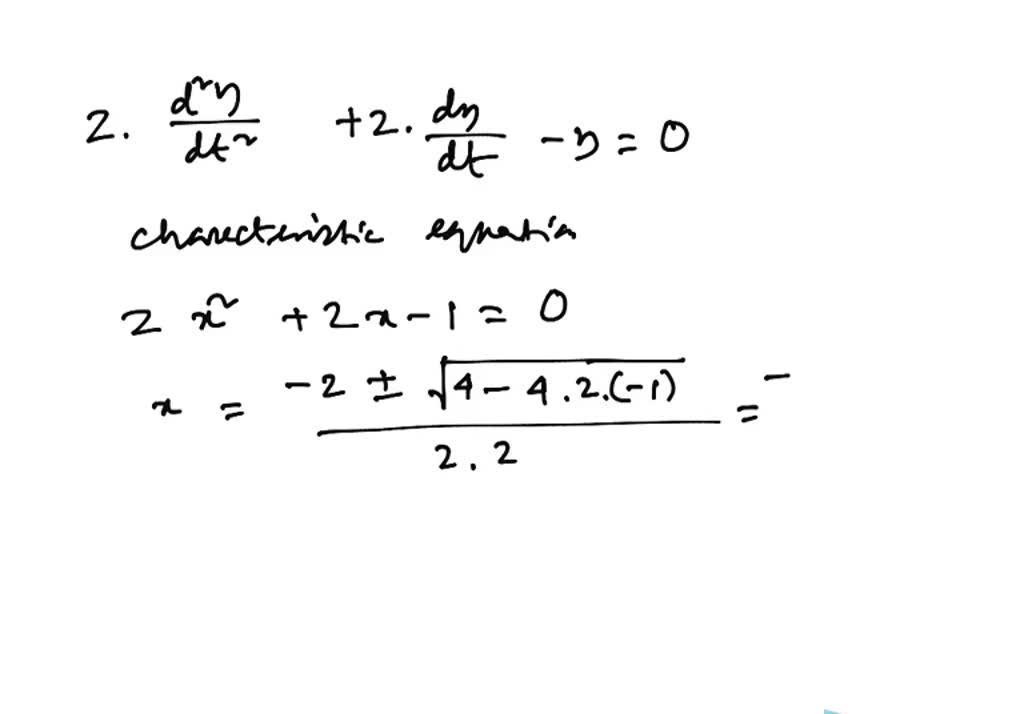 2. d²y/dt² +2. dy/dt - y = 0
charecteristic equation
2 x² + 2x - 1 = 0
x = (-2 ± √(4 - 4.2.(-1)))/(2.2) = -